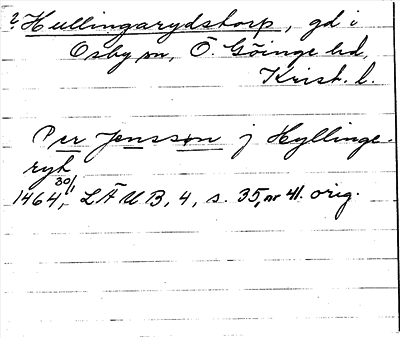 ? Hullingarydstorp, gd i
Osby sn, Ö. Göinge hd,
Krist. l.
Per Jensson j Hyllinge-
ryk
30/1
1464, LÄUB, 4, s. 35, nr 41. orig.